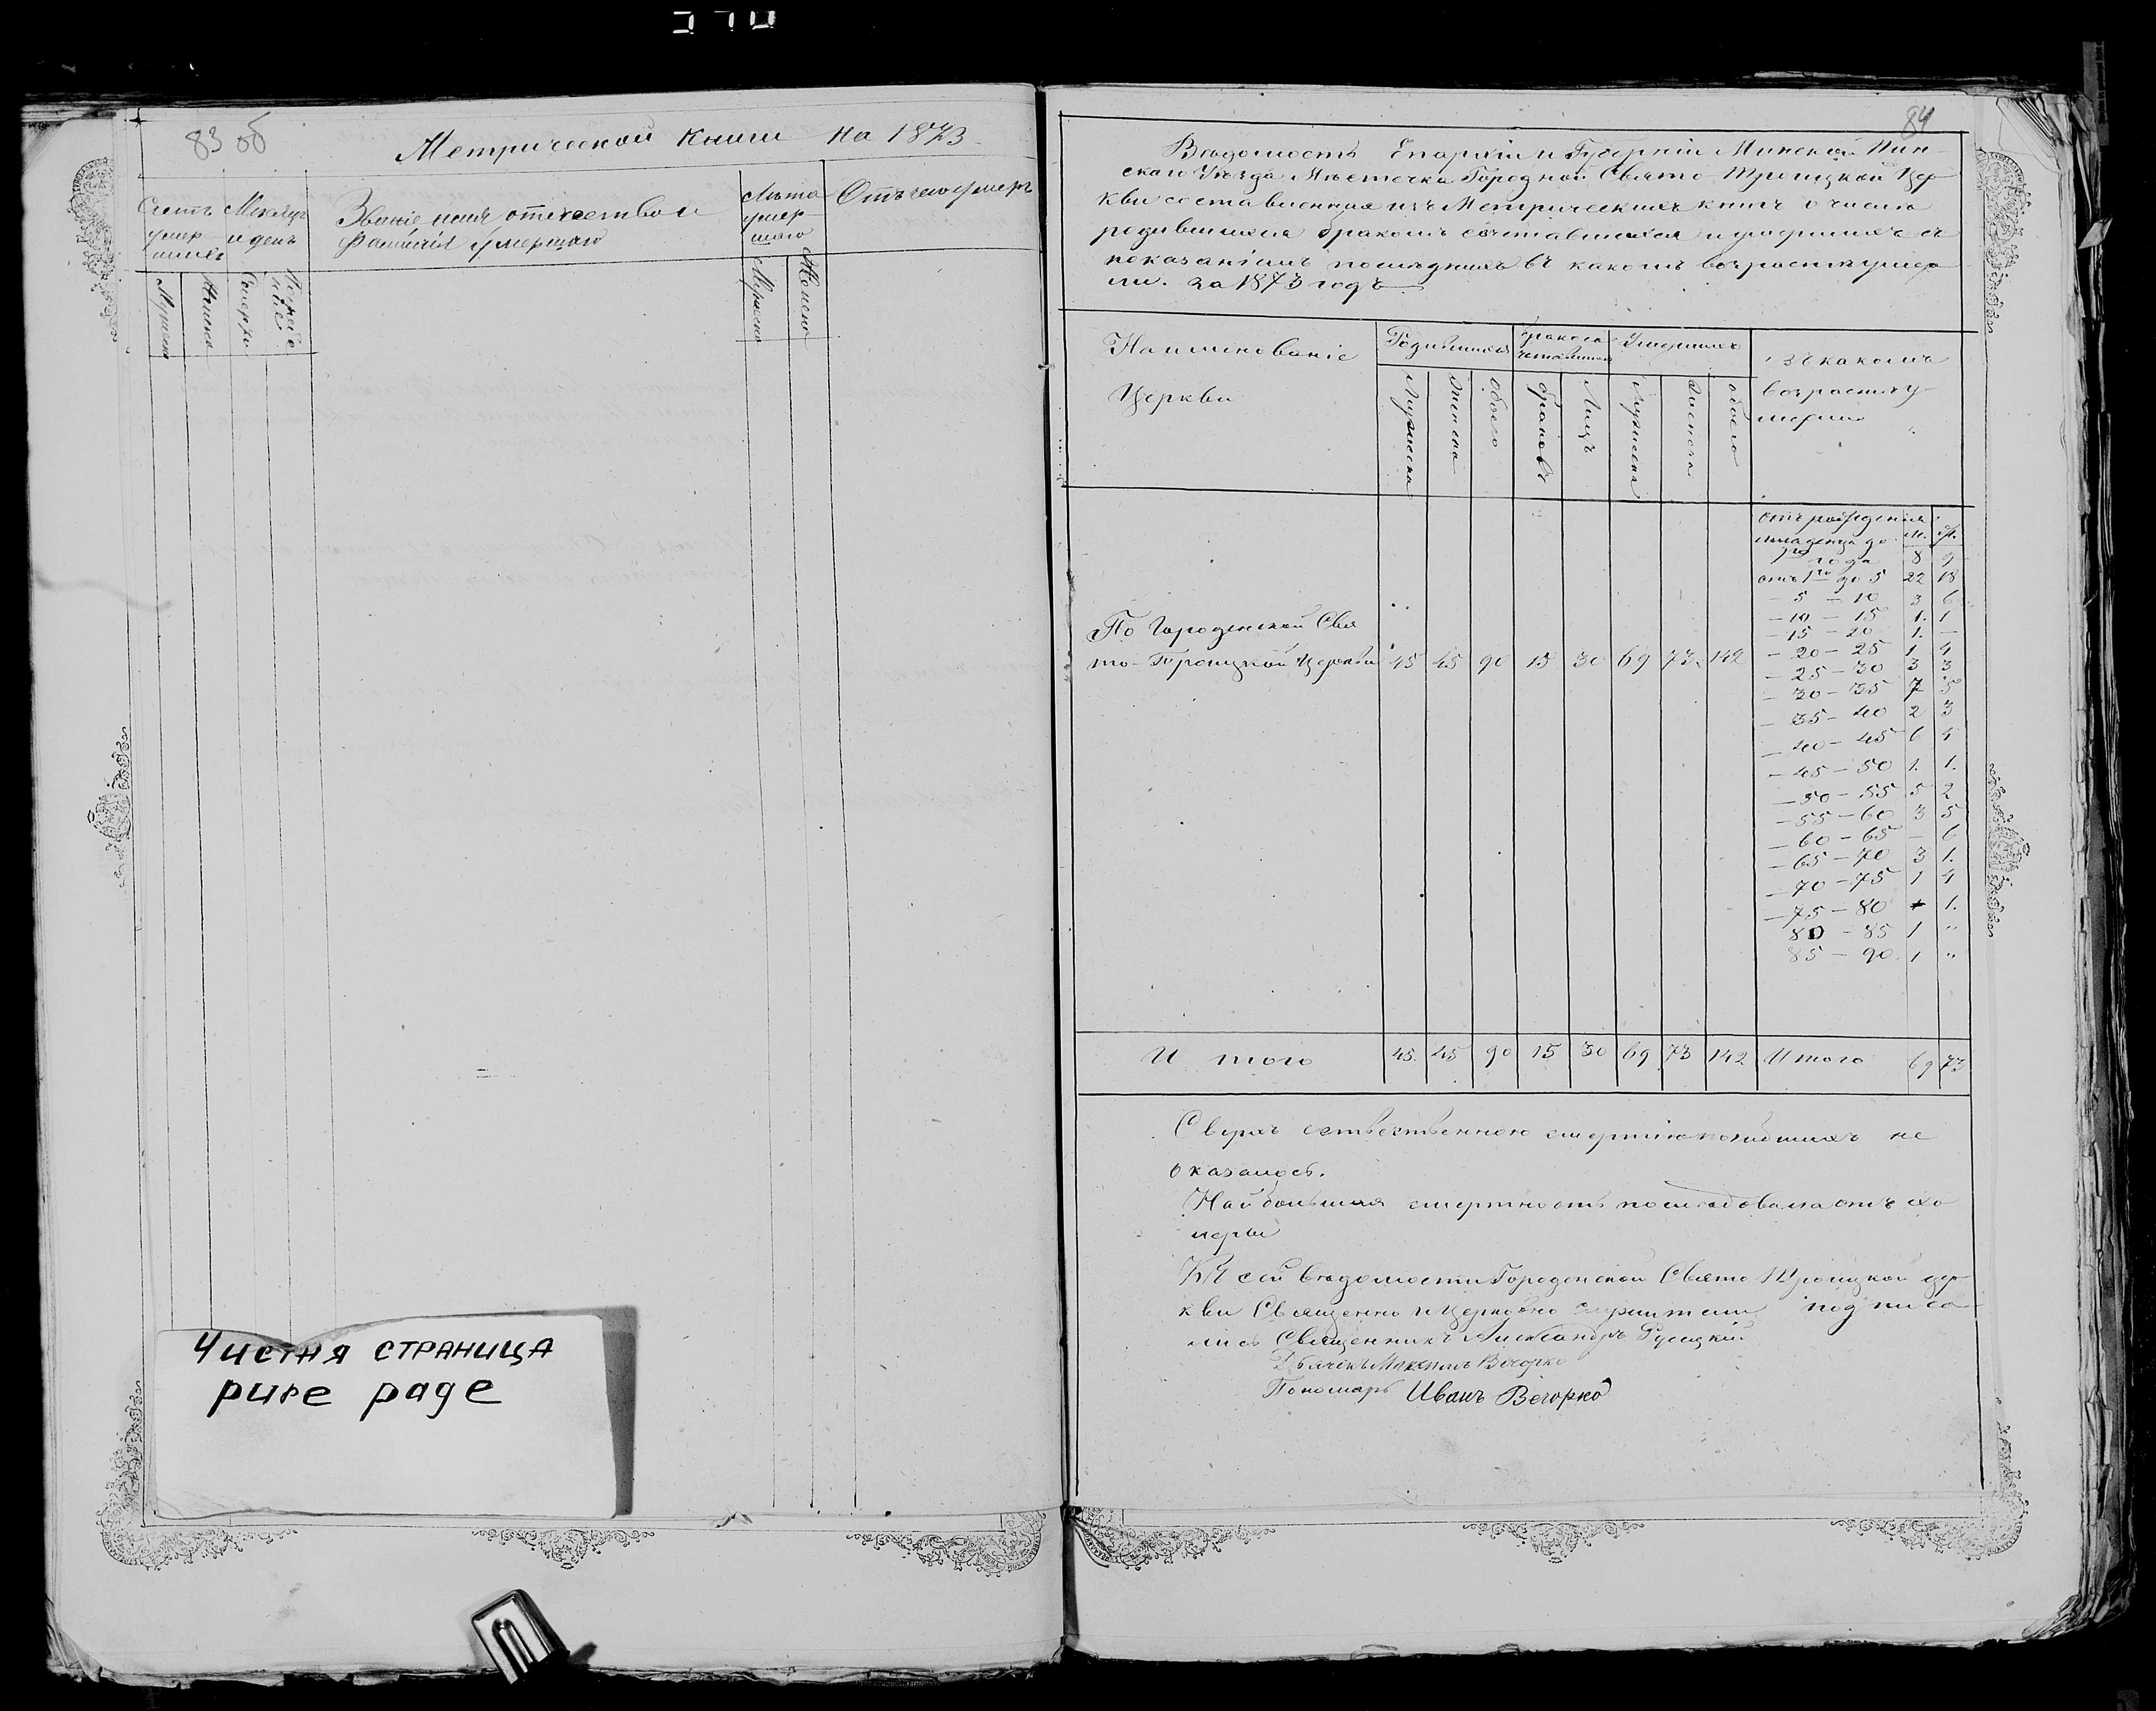 83 об
Метрической Книги на 1873.
Счетъ умер-шихъ
Мѣсяцъ и день
Званіе имя отчество и фамилія умершаго
Лѣта умер-шаго
Отъ чего умеръ
Мужска
Женска
Смерти
Мужеска
Женска
Чистая страница
pure page
84
Вѣдомость Епархіи и Губерніи Минской Пин-
скаго Уѣзда Мѣстечка Городной Свято-Троицкой Цер
кви составленная изъ Метрическихъ книгъ о числѣ
родившихся бракомъ сочетавшихся и умершихъ съ
показаніемъ послѣднихъ въ какомъ возрастѣ умер
ли. за 1873 годъ
Наименованіе
Церкви
Родившихся
Умершихъ
въ какомъ
возрастѣ у-
мерли
Мужеска
Женска
обоего
браковъ
Лицъ
Мужеска
Женска
обоего
отъ рожденія
младенца до м. ж.
1го года 8 9
отъ 1го до 5 22 18
- 5 - 10 3 6
- 10 - 15 1. 1
- 15 - 20 1. -
- 20 - 25 1 4
- 25 - 30 3 3
- 30 - 35 7 5
- 35 - 40 2 3
- 40 - 45 6 4
- 45 - 50 1. 1.
- 50 - 55 5 2
- 55 - 60 3 5
- 60 - 65 - 6
- 65 - 70 3 1.
- 70 - 75 1 4
- 75 - 80 1.
80 - 85 1 "
85 - 90. 1 "
По Городенской Свя
то-Троицкой Церкви 45 45 90 15 30 69 73. 142
И того 45. 45 90 15 30 69 73 142 Итого 69 73
Сверхъ естественною смертію погибшихъ не
оказалось.
Наибольшая смертность послѣдовала отъ хо
леры
Къ сей вѣдомости Городенской Свято Троицкой цер
кви Священно и Церковно служители подписа
лись Священникъ Александръ Русецкій
Дьячокъ Максимъ Вечорко
Пономарь Иванъ Вечорко